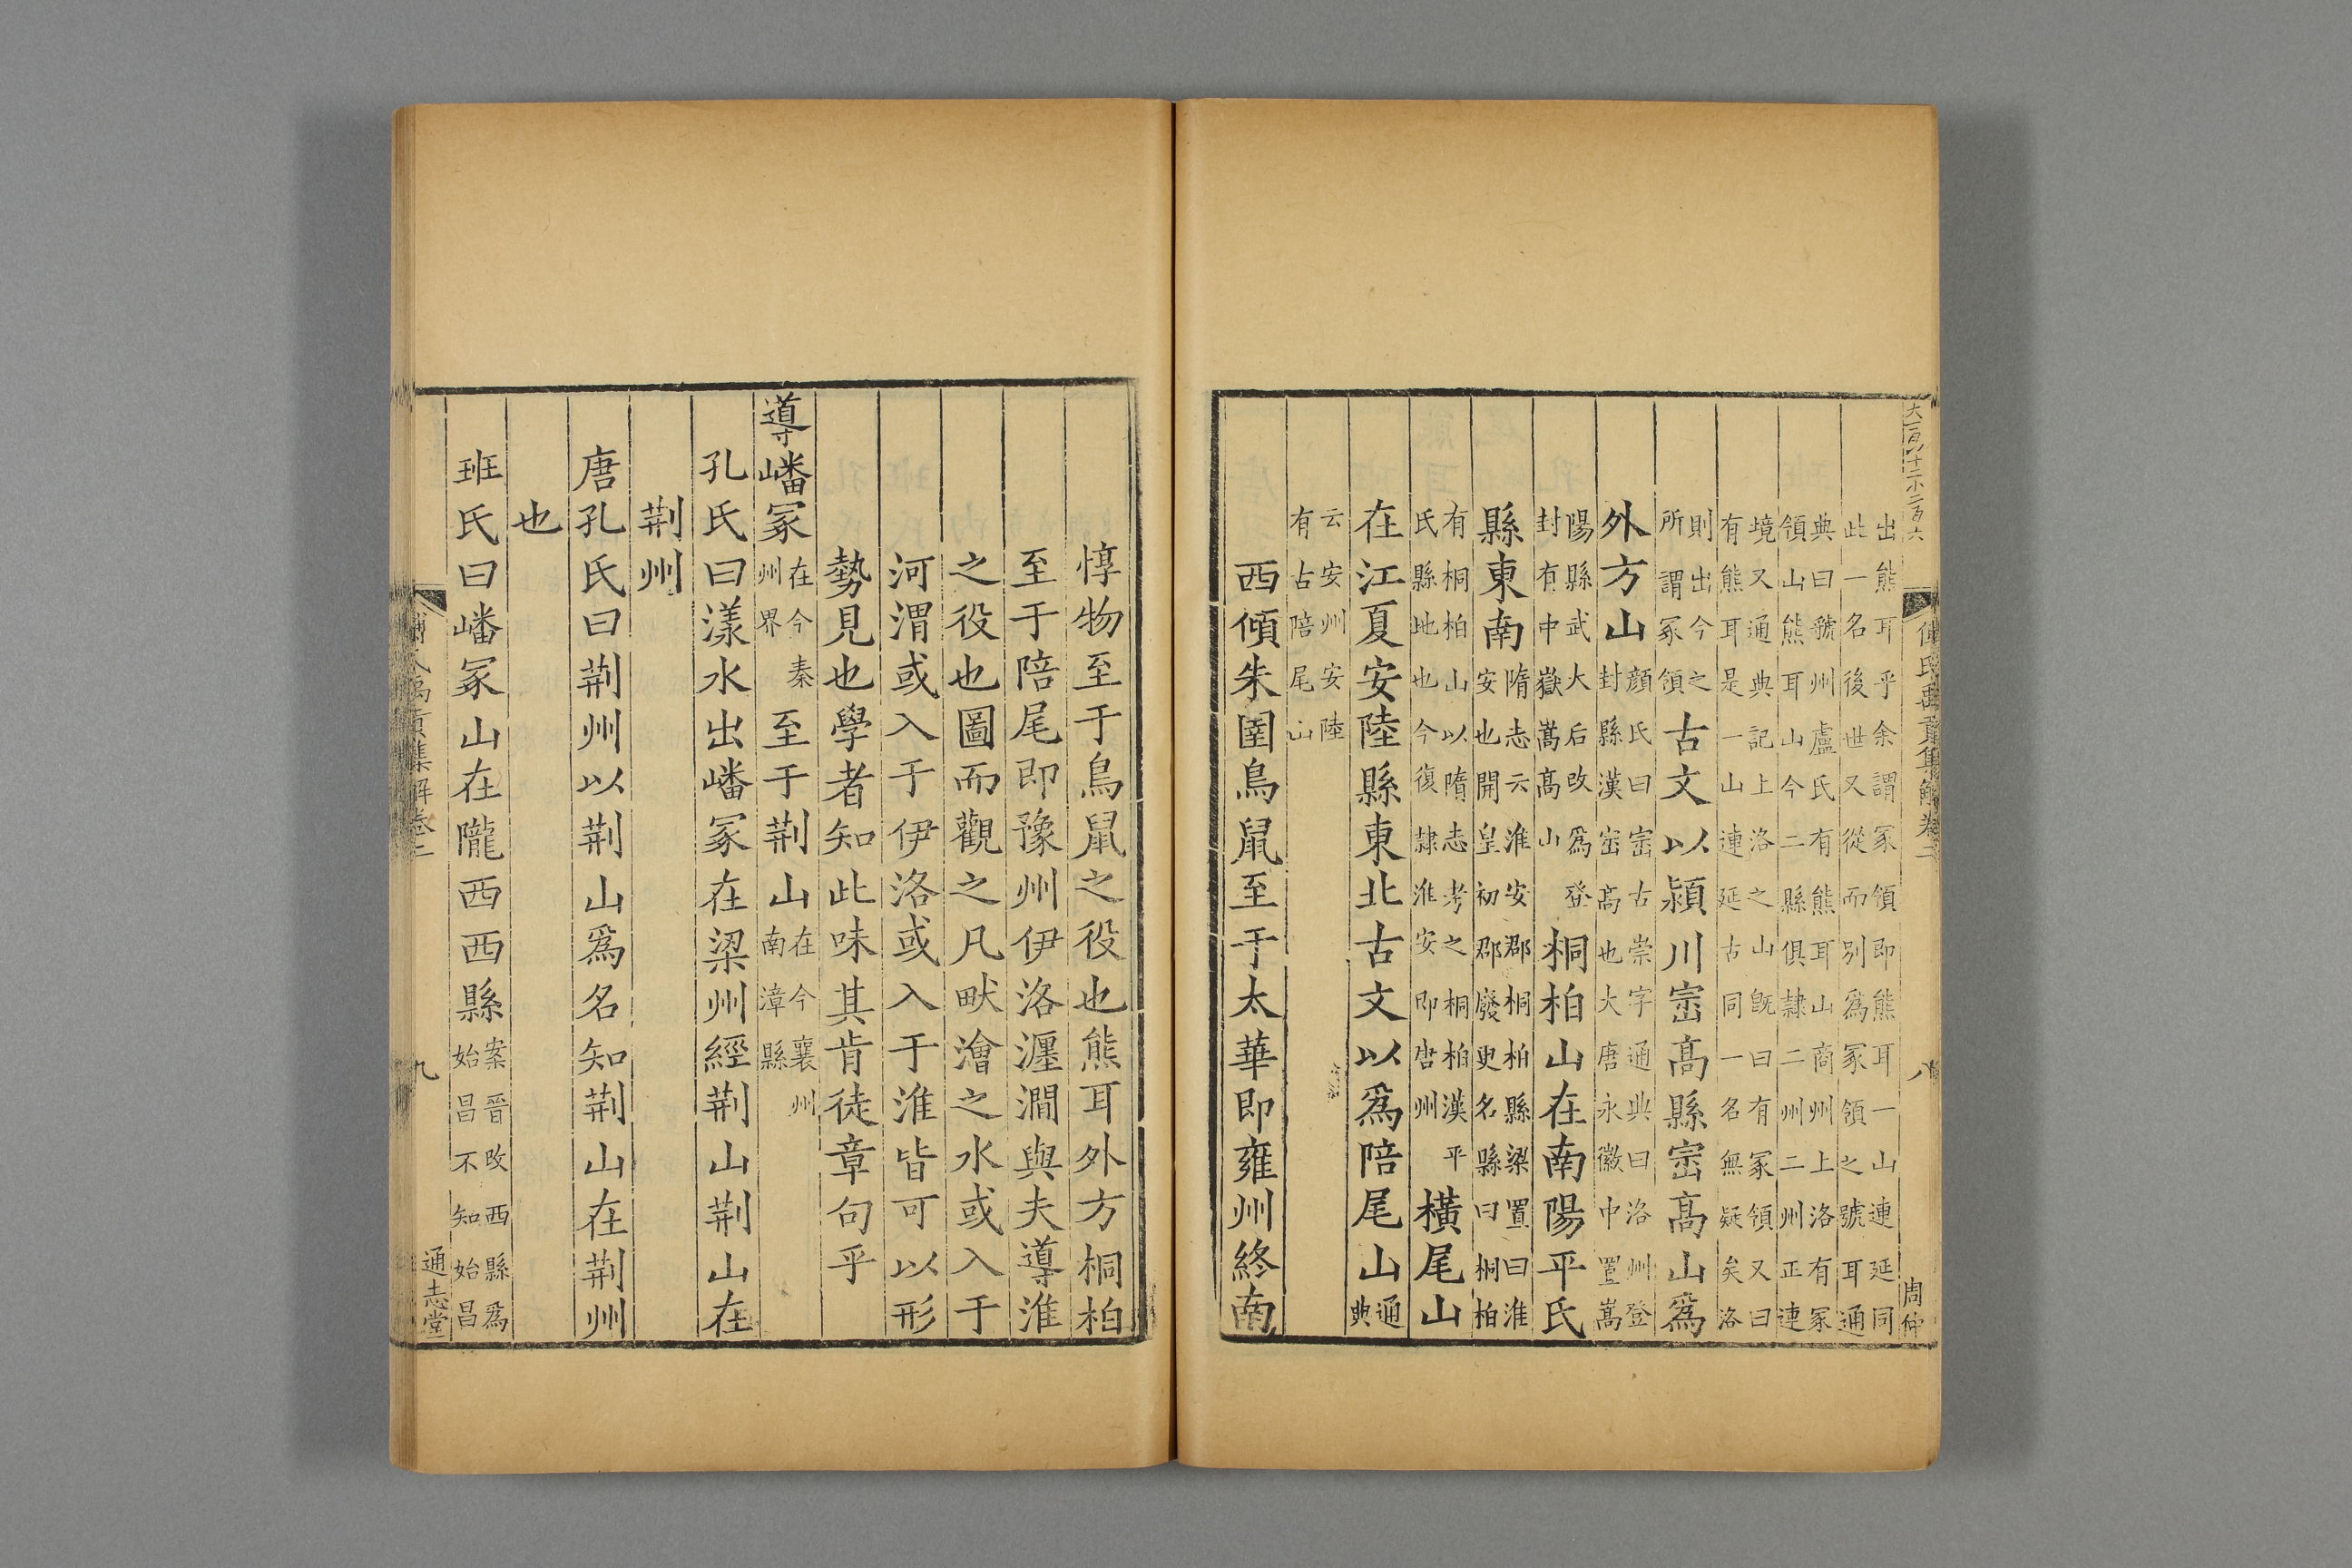 大一百八十二小二百六
傅氏禹貢集解卷二
八
周仲
出熊耳乎余謂冢領即熊耳一山連延同
此一名後世又從而別爲冢領之號耳通
典曰虢州盧氏有熊耳山商州上洛有冢
領山熊耳山今二縣俱隸二州二州正連
境又通典記上洛之山旣曰有冢領又曰
有熊耳是一山連延古同一名無疑矣洛
則出今之
所謂冢領
古文以潁川崈高縣崈高山爲
外方山
顔氏曰崈古崇字通典曰洛州登
封縣漢崈高也大唐永徽中置嵩
陽縣武大后改爲登
封有中嶽嵩高山
桐柏山在南陽平氏
縣東南
隋志云淮安郡桐柏縣梁置曰淮
安也開皇初郡廢更名縣曰桐柏
有桐柏山以隋志考之桐柏漢平
氏縣地也今復隸淮安即唐州
橫尾山
在江夏安陸縣東北古文以爲陪尾山
通
典
云安州安陸
有古陪尾山
西傾朱圉鳥鼠至于太華即雍州終南
惇物至于鳥鼠之役也熊耳外方桐柏
至于陪尾即豫州伊洛瀍澗與夫導淮
之役也圖而觀之凡畎澮之水或入于
河渭或入于伊洛或入于淮皆可以形
勢見也學者知此味其肯徒章句乎
導嶓冢
在今秦
州界
至于荆山
在今襄州
南漳縣
孔氏曰漾水出嶓冢在梁州經荆山荆山在
荆州
唐孔氏曰荆州以荆山爲名知荆山在荆州
也
班氏曰嶓冢山在隴西西縣
案晉改西縣爲
始昌不知始昌
禹貢集解卷二
九
通志堂